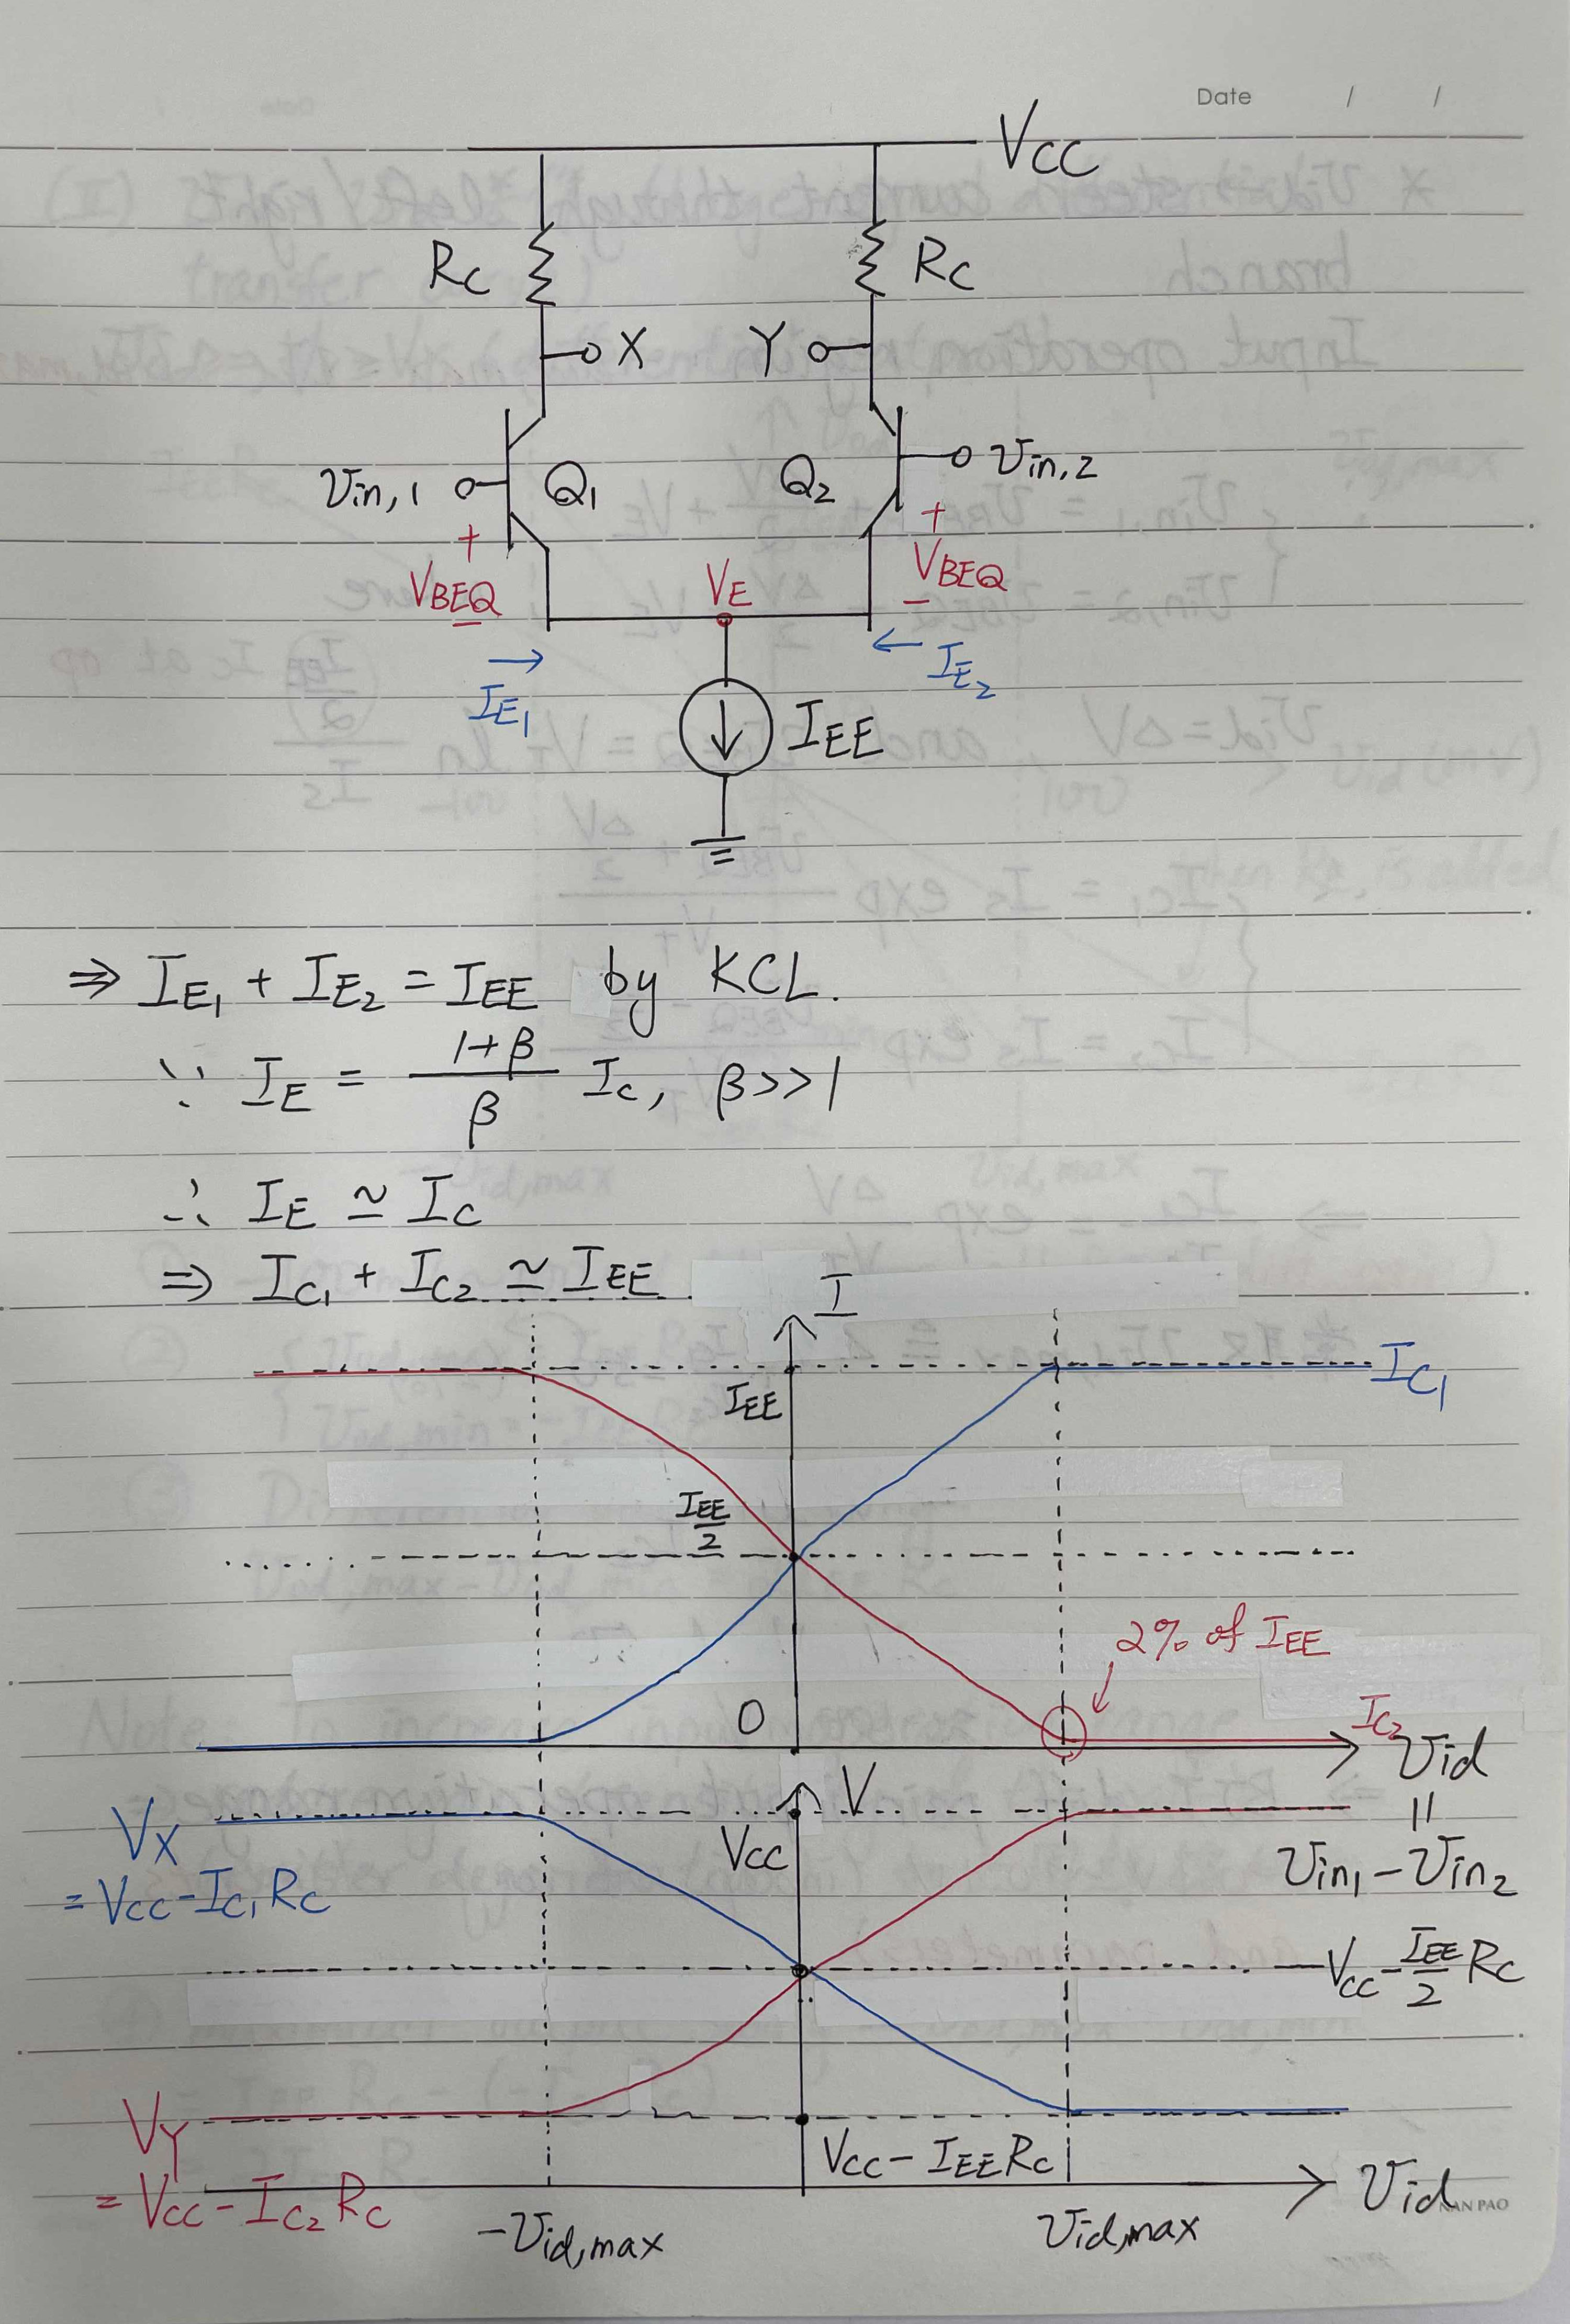 Date / /
VCC
RC RC
X Y
Vin,1 Q1 Q2 Vin,2
+ +
VBEQ VE VBEQ
- -
IE1 IE2
IEE
⇒ IE1 + IE2 = IEE by KCL.
∵ IE = (1+β)/β IC, β>>1
∴ IE ≃ IC
⇒ IC1 + IC2 ≃ IEE
I
IC1
IEE
IEE/2
2% of IEE
0
IC2
Vid
V
VX
VCC
=
= VCC - IC1 RC
Vin1 - Vin2
VCC - IEE/2 RC
VY
VCC - IEE RC
= VCC - IC2 RC
Vid
NAN PAO
-Vid,max
Vid,max